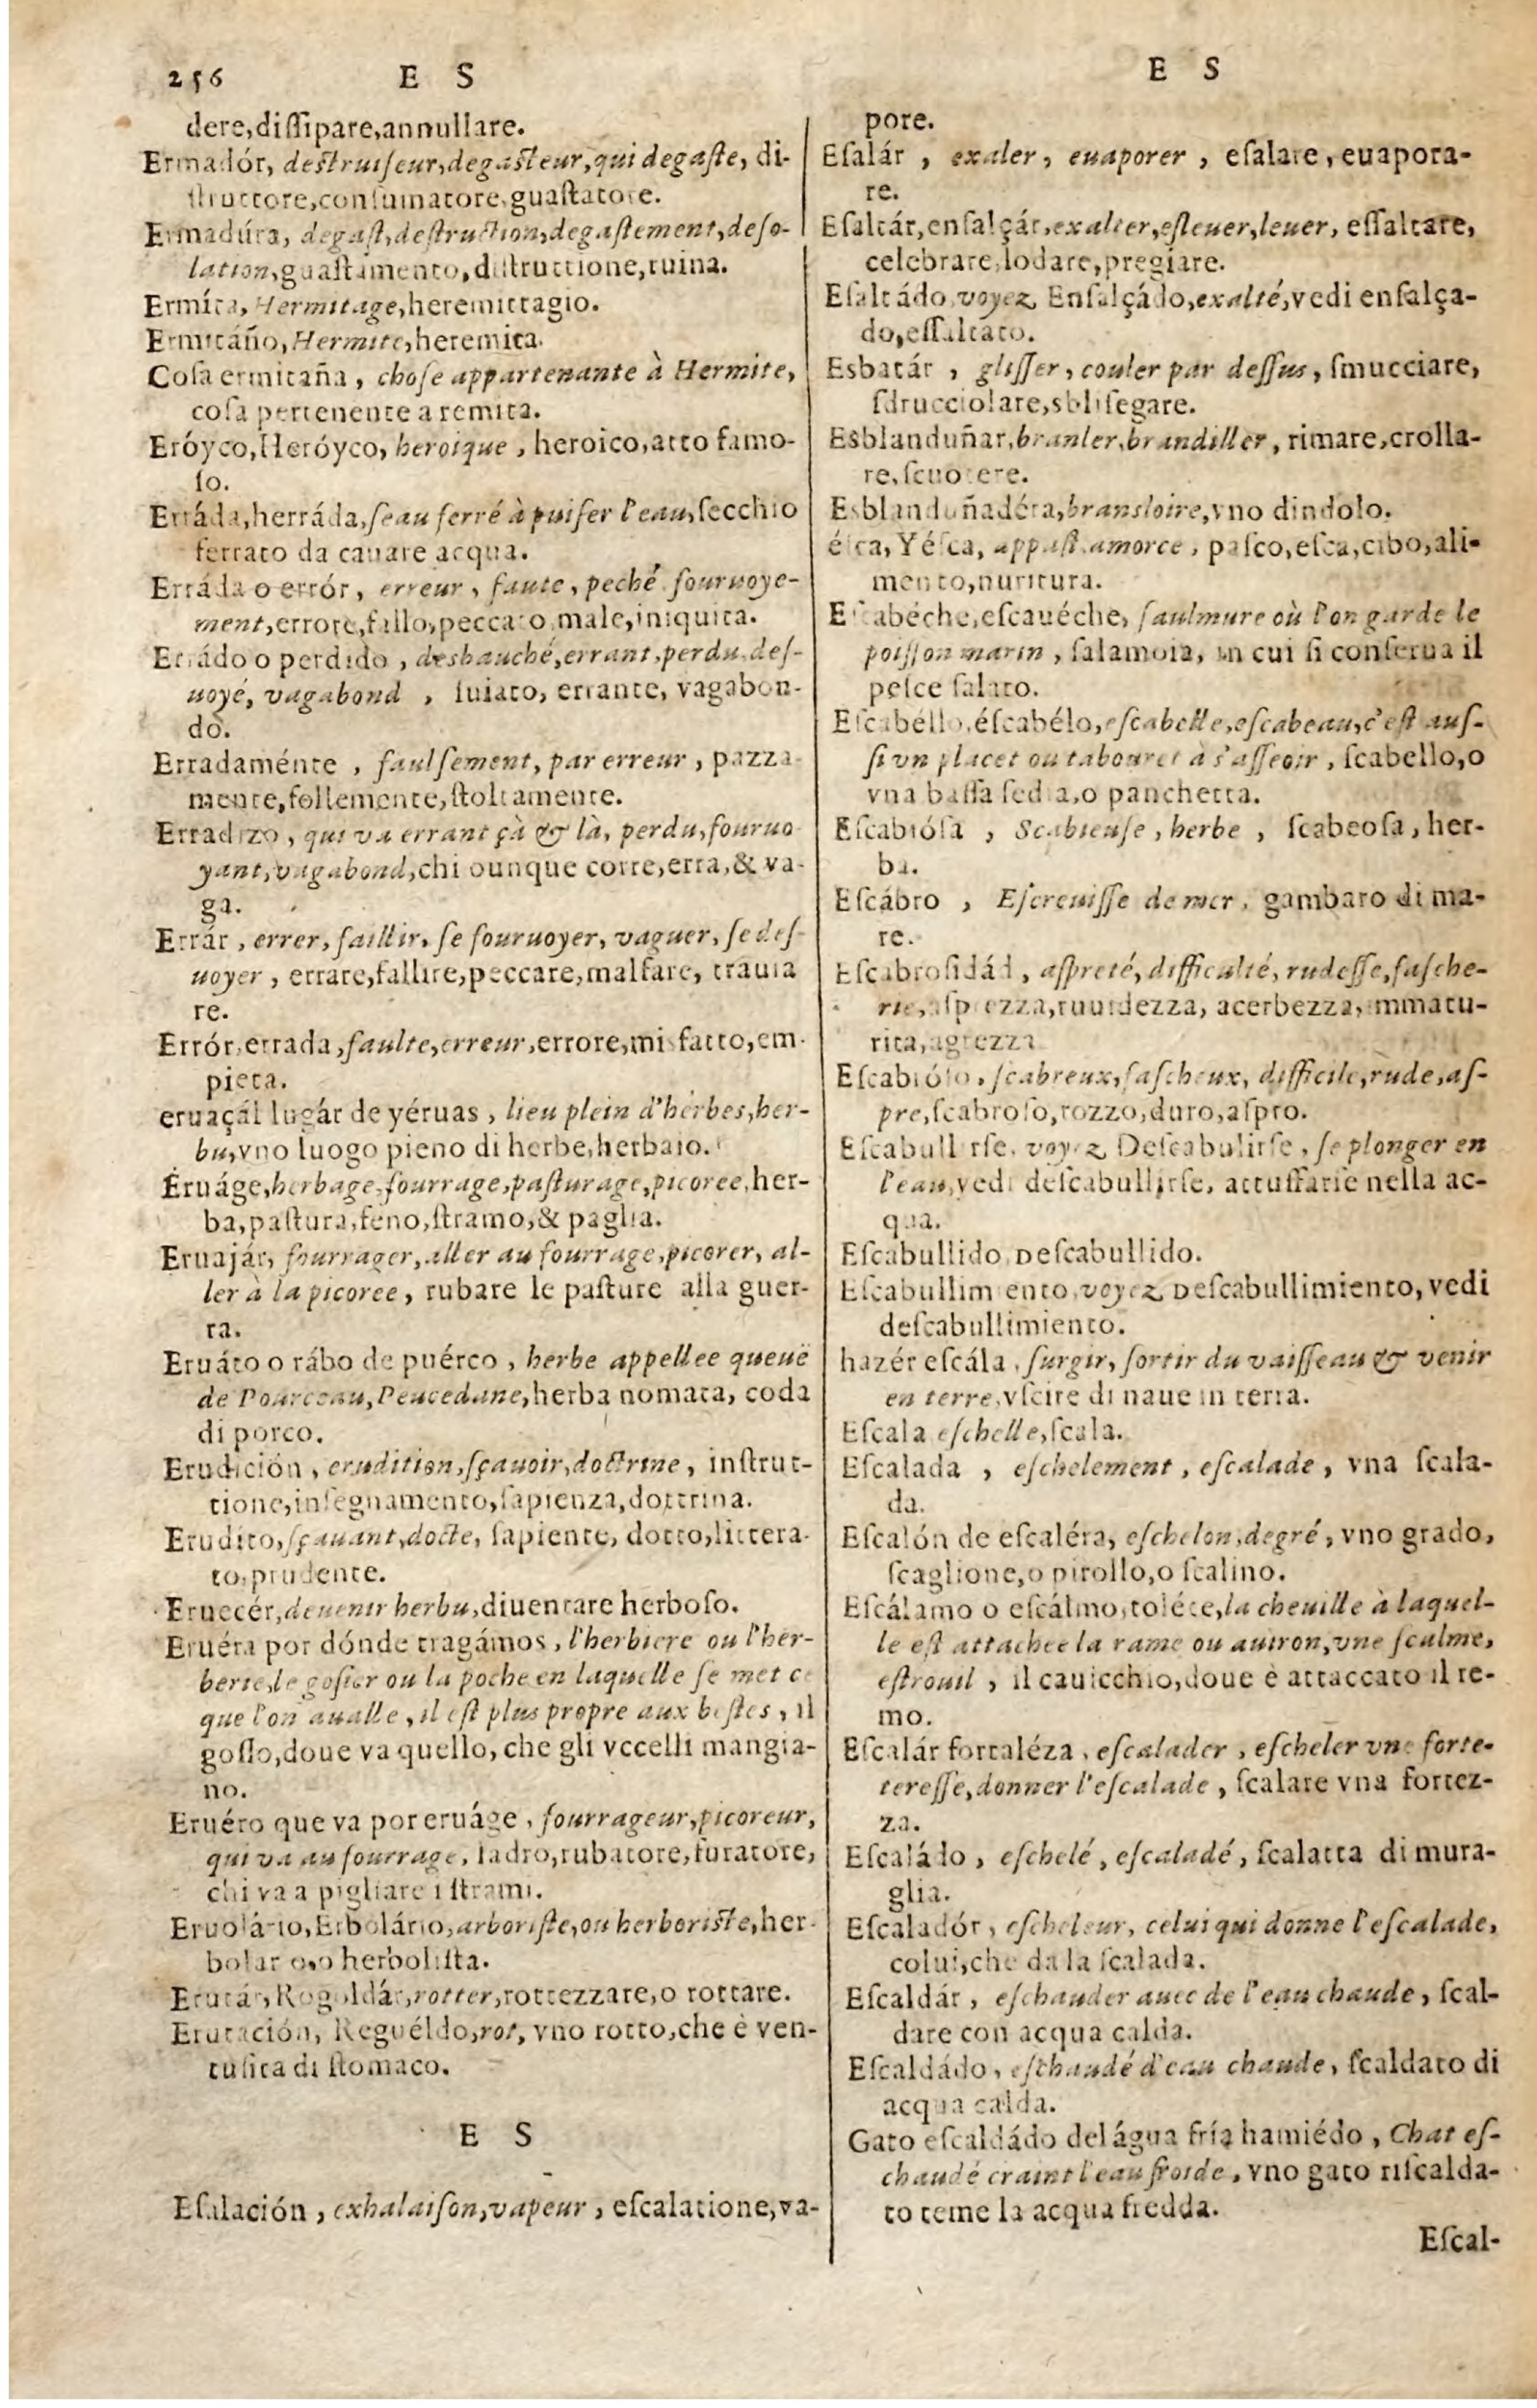 256 E S
dere,diſſipare,annullare.
Ermadór, destruiſeur,degasteur,qui degaſte, di-
ſtruttore,conſumatore,guaſtatore.
Ermadúra, degaſt,deſtruction,degaſtement,deſo-
lation,guaſtamento,diſtruttione,ruina.
Ermíta, Hermitage,heremittagio.
Ermitáño,Hermite,heremita.
Coſa ermitaña, choſe appartenante à Hermite,
coſa pertenente a remita.
Eróyco,Heróyco, heroique, heroico,atto famo-
ſo.
Erráda,herráda,ſeau ferré à puiſer l'eau,ſecchio
ferrato da cauare acqua.
Erráda o errór, erreur, faute, peché, fouruoye-
ment,errore,fallo,peccato,male,iniquita.
Errádo o perdido, desbauché,errant,perdu,deſ-
uoyé, vagabond, ſuiato, errante, vagabon-
do.
Erradaménte, faulſement, par erreur, pazza-
mente,follemente,ſtoltamente.
Erradizo, qui va errant çà & là, perdu,fouruo
yant,vagabond,chi ounque corre,erra,& va-
ga.
Errár, errer, faillir, ſe fouruoyer, vaguer, ſe deſ-
uoyer, errare,fallire,peccare,malfare, trauia
re.
Errór,errada,faulte,erreur,errore,misfatto,em-
pieta.
eruaçál lugár de yéruas, lieu plein d'herbes,her-
bu,vno luogo pieno di herbe,herbaio.
Éruáge,herbage,fourrage,paſturage,picoree,her-
ba,paſtura,feno,ſtramo,& paglia.
Eruajár, fourrager,aller au fourrage,picorer, al-
ler à la picoree, rubare le paſture alla guer-
ra.
Eruáto o rábo de puérco, herbe appellee queuë
de Pourceau,Peucedane,herba nomata, coda
di porco.
Erudición, erudition,ſçauoir,doctrine, inſtrut-
tione,inſegnamento,ſapienza,dottrina.
Erudíto,ſçauant,docte, ſapiente, dotto,littera-
to,prudente.
Eruecér,deuenir herbu,diuentare herboſo.
Eruéra por dónde tragámos, l'herbiere ou l'her-
berie,le goſier ou la poche en laquelle ſe met ce
que l'on aualle, il eſt plus propre aux beſtes, il
goſſo,doue va quello, che gli vccelli mangia-
no.
Eruéro que va por eruáge, fourrageur,picoreur,
qui va au fourrage, ladro,rubatore,furatore,
chi va a pigliare i ſtrami.
Eruolário,Erbolário,arboriſte,ou herboriste,her-
bolario,o herboliſta.
Erutár,Regoldár,rotter,rottezzare,o rottare.
Erutación, Reguéldo,rot, vno rotto,che è ven-
tuſita di ſtomaco.
E S
Eſalación, exhalaiſon,vapeur, eſcalatione,va-
E S
pore.
Eſalár, exaler, euaporer, eſalare, euapora-
re.
Eſaltár,enſalçár,exalter,eſleuer,leuer, eſſaltare,
celebrare,lodare,pregiare.
Eſaltádo,voyez Enſalçádo,exalté,vedi enſalça-
do,eſſaltato.
Esbatár, gliſſer, couler par deſſus, ſmucciare,
ſdrucciolare,sbliſegare.
Esblanduñar,branler,brandiller, rimare,crolla-
re,ſcuotere.
Esblanduñadéra,bransloire,vno dindolo.
éſca, Yéſca, appaſt,amorce, paſco,eſca,cibo,ali-
mento,nuritura.
Eſcabéche,eſcauéche, ſaulmure où l'on garde le
poiſſon marin, ſalamoia, in cui ſi conſerua il
peſce ſalato.
Eſcabéllo,éſcabélo,eſcabelle,eſcabeau,c'eſt auſ-
ſi vn placet ou tabouret à s'aſſeoir, ſcabello,o
vna baſſa ſedia,o panchetta.
Eſcabióſa, Scabieuſe, herbe, ſcabeoſa, her-
ba.
Eſcábro, Eſcreuiſſe de mer, gambaro di ma-
re.
Eſcabroſidád, aſpreté, difficulté, rudeſſe,faſche-
rie,aſprezza,ruuidezza, acerbezza, immatu-
rita,agrezza
Eſcabróſo, ſcabreux,faſcheux, difficile,rude,aſ-
pre,ſcabroſo,rozzo,duro,aſpro.
Eſcabullirſe, voyez Deſcabulirſe, ſe plonger en
l'eau,vedi deſcabullirſe, attuffarſe nella ac-
qua.
Eſcabullido,Deſcabullido.
Eſcabullimiento,voyez Deſcabullimiento, vedi
deſcabullimiento.
hazér eſcála, ſurgir, ſortir du vaiſſeau & venir
en terre,vſcire di naue in terra.
Eſcala eſchelle,ſcala.
Eſcalada, eſchelement, eſcalade, vna ſcala-
da.
Eſcalón de eſcaléra, eſchelon,degré, vno grado,
ſcaglione,o pirollo,o ſcalino.
Eſcálamo o eſcálmo,toléte,la cheuille à laquel-
le eſt attachee la rame ou auiron,vne ſcalme,
eſtrouil, il cauicchio,doue è attaccato il re-
mo.
Eſcalár fortaléza, eſcalader, eſcheler vne forte-
tereſſe,donner l'eſcalade, ſcalare vna fortez-
za.
Eſcaládo, eſchelé, eſcaladé, ſcalatta di mura-
glia.
Eſcaladór, eſcheleur, celui qui donne l'eſcalade,
colui,che da la ſcalada.
Eſcaldár, eſchauder auec de l'eau chaude, ſcal-
dare con acqua calda.
Eſcaldádo, eſchaudé d'eau chaude, ſcaldato di
acqua calda.
Gato eſcaldádo del água fría hamiédo, Chat eſ-
chaudé craint l'eau froide, vno gato riſcalda-
to teme la acqua fredda.
Eſcal-